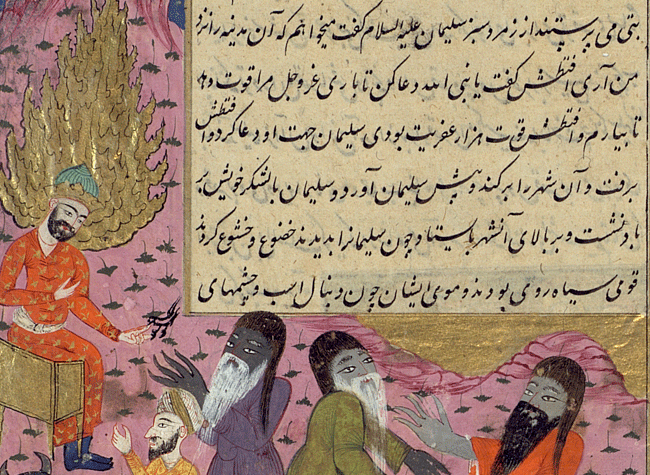 بتی می پرستیدند از زمرد سبز سلیمان علیه السلام گفت میخواهم که آن مدینه را نزد
من آری افتطش گفت یا نبی الله دعا کن تا باری عز و جل مرا قوت دهد
تا بیارم و افتطش قوت هزار عفریت بودی سلیمان جهت او دعا کرد و افتطش
برفت و آن شهر را برکند و پیش سلیمان آورد و سلیمان با لشکر خویش بر
باد نشست و بر بالای آنشهر باستاد و چون سلیمانرا بدیدند خضوع و خشوع کردند
قومی سیاه روی بودند و موی ایشان چون دنبال اسب و چشمهای